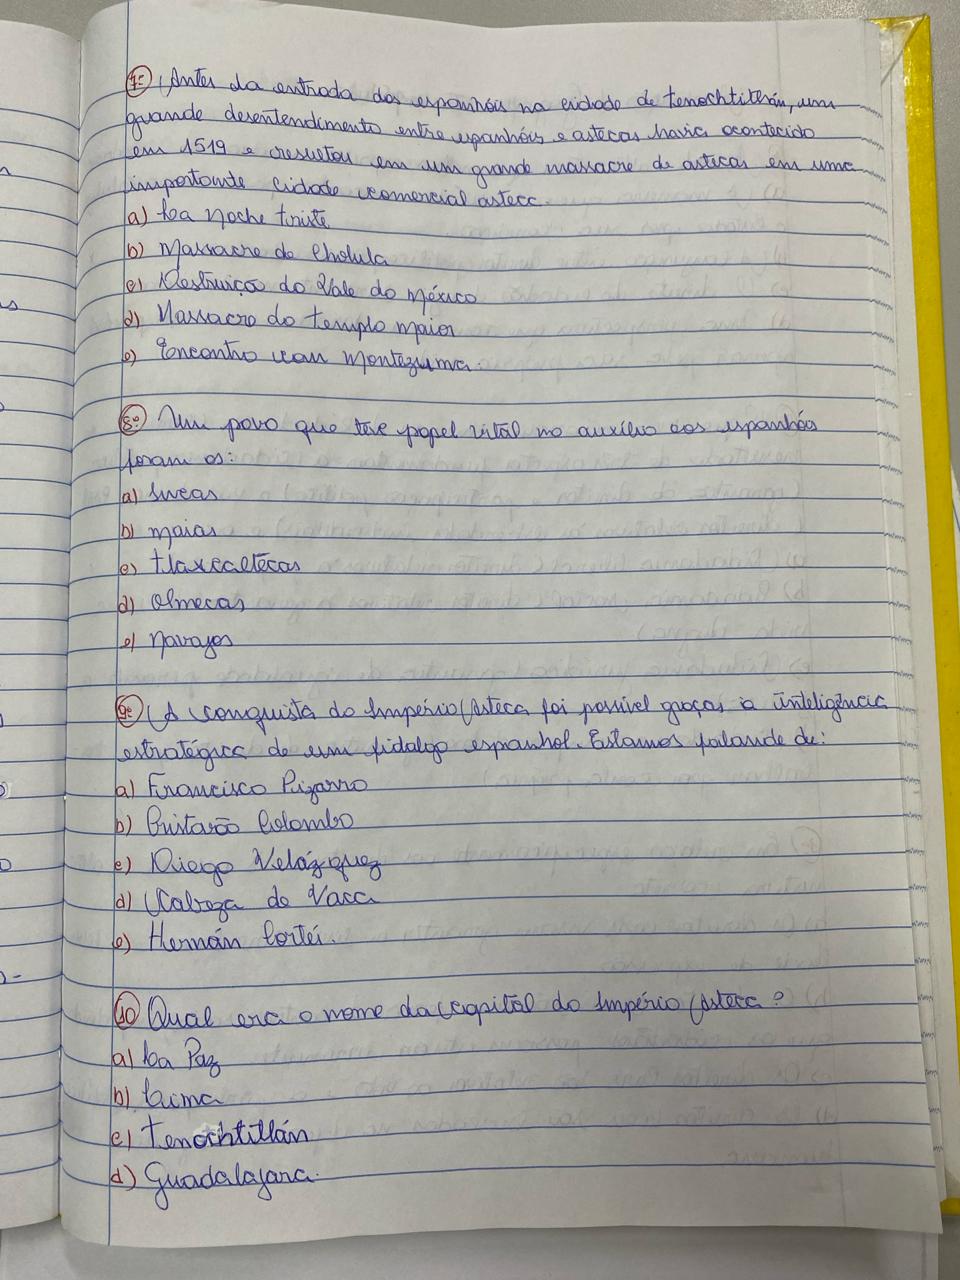 7º Antes da entrada dos espanhóis na cidade de tenochtitlán, um
grande desentendimento entre espanhóis e astecas havia acontecido
em 1519 e resultou em um grande massacre de astecas em uma
importante cidade comercial asteca.
a) La noche triste
b) Massacre de Cholula
c) Destruição do Vale do México
d) Massacre do templo maior
e) Encontro com Montezuma.
8º Um povo que teve papel vital no auxílio aos espanhóis
foram os:
a) Incas
b) maias
c) tlaxcaltecas
d) Olmecas
e) navajos
9º A conquista do Império Asteca foi possível graças a inteligência
estratégica de um fidalgo espanhol. Estamos falando de:
a) Francisco Pizarro
b) Cristovão Colombo
c) Diego Velázquez
d) Cabeza de Vaca
e) Hernán Cortés.
10 Qual era o nome da capital do Império Asteca?
a) La Paz
b) Lima
c) Tenochtitlán
d) Guadalajara.